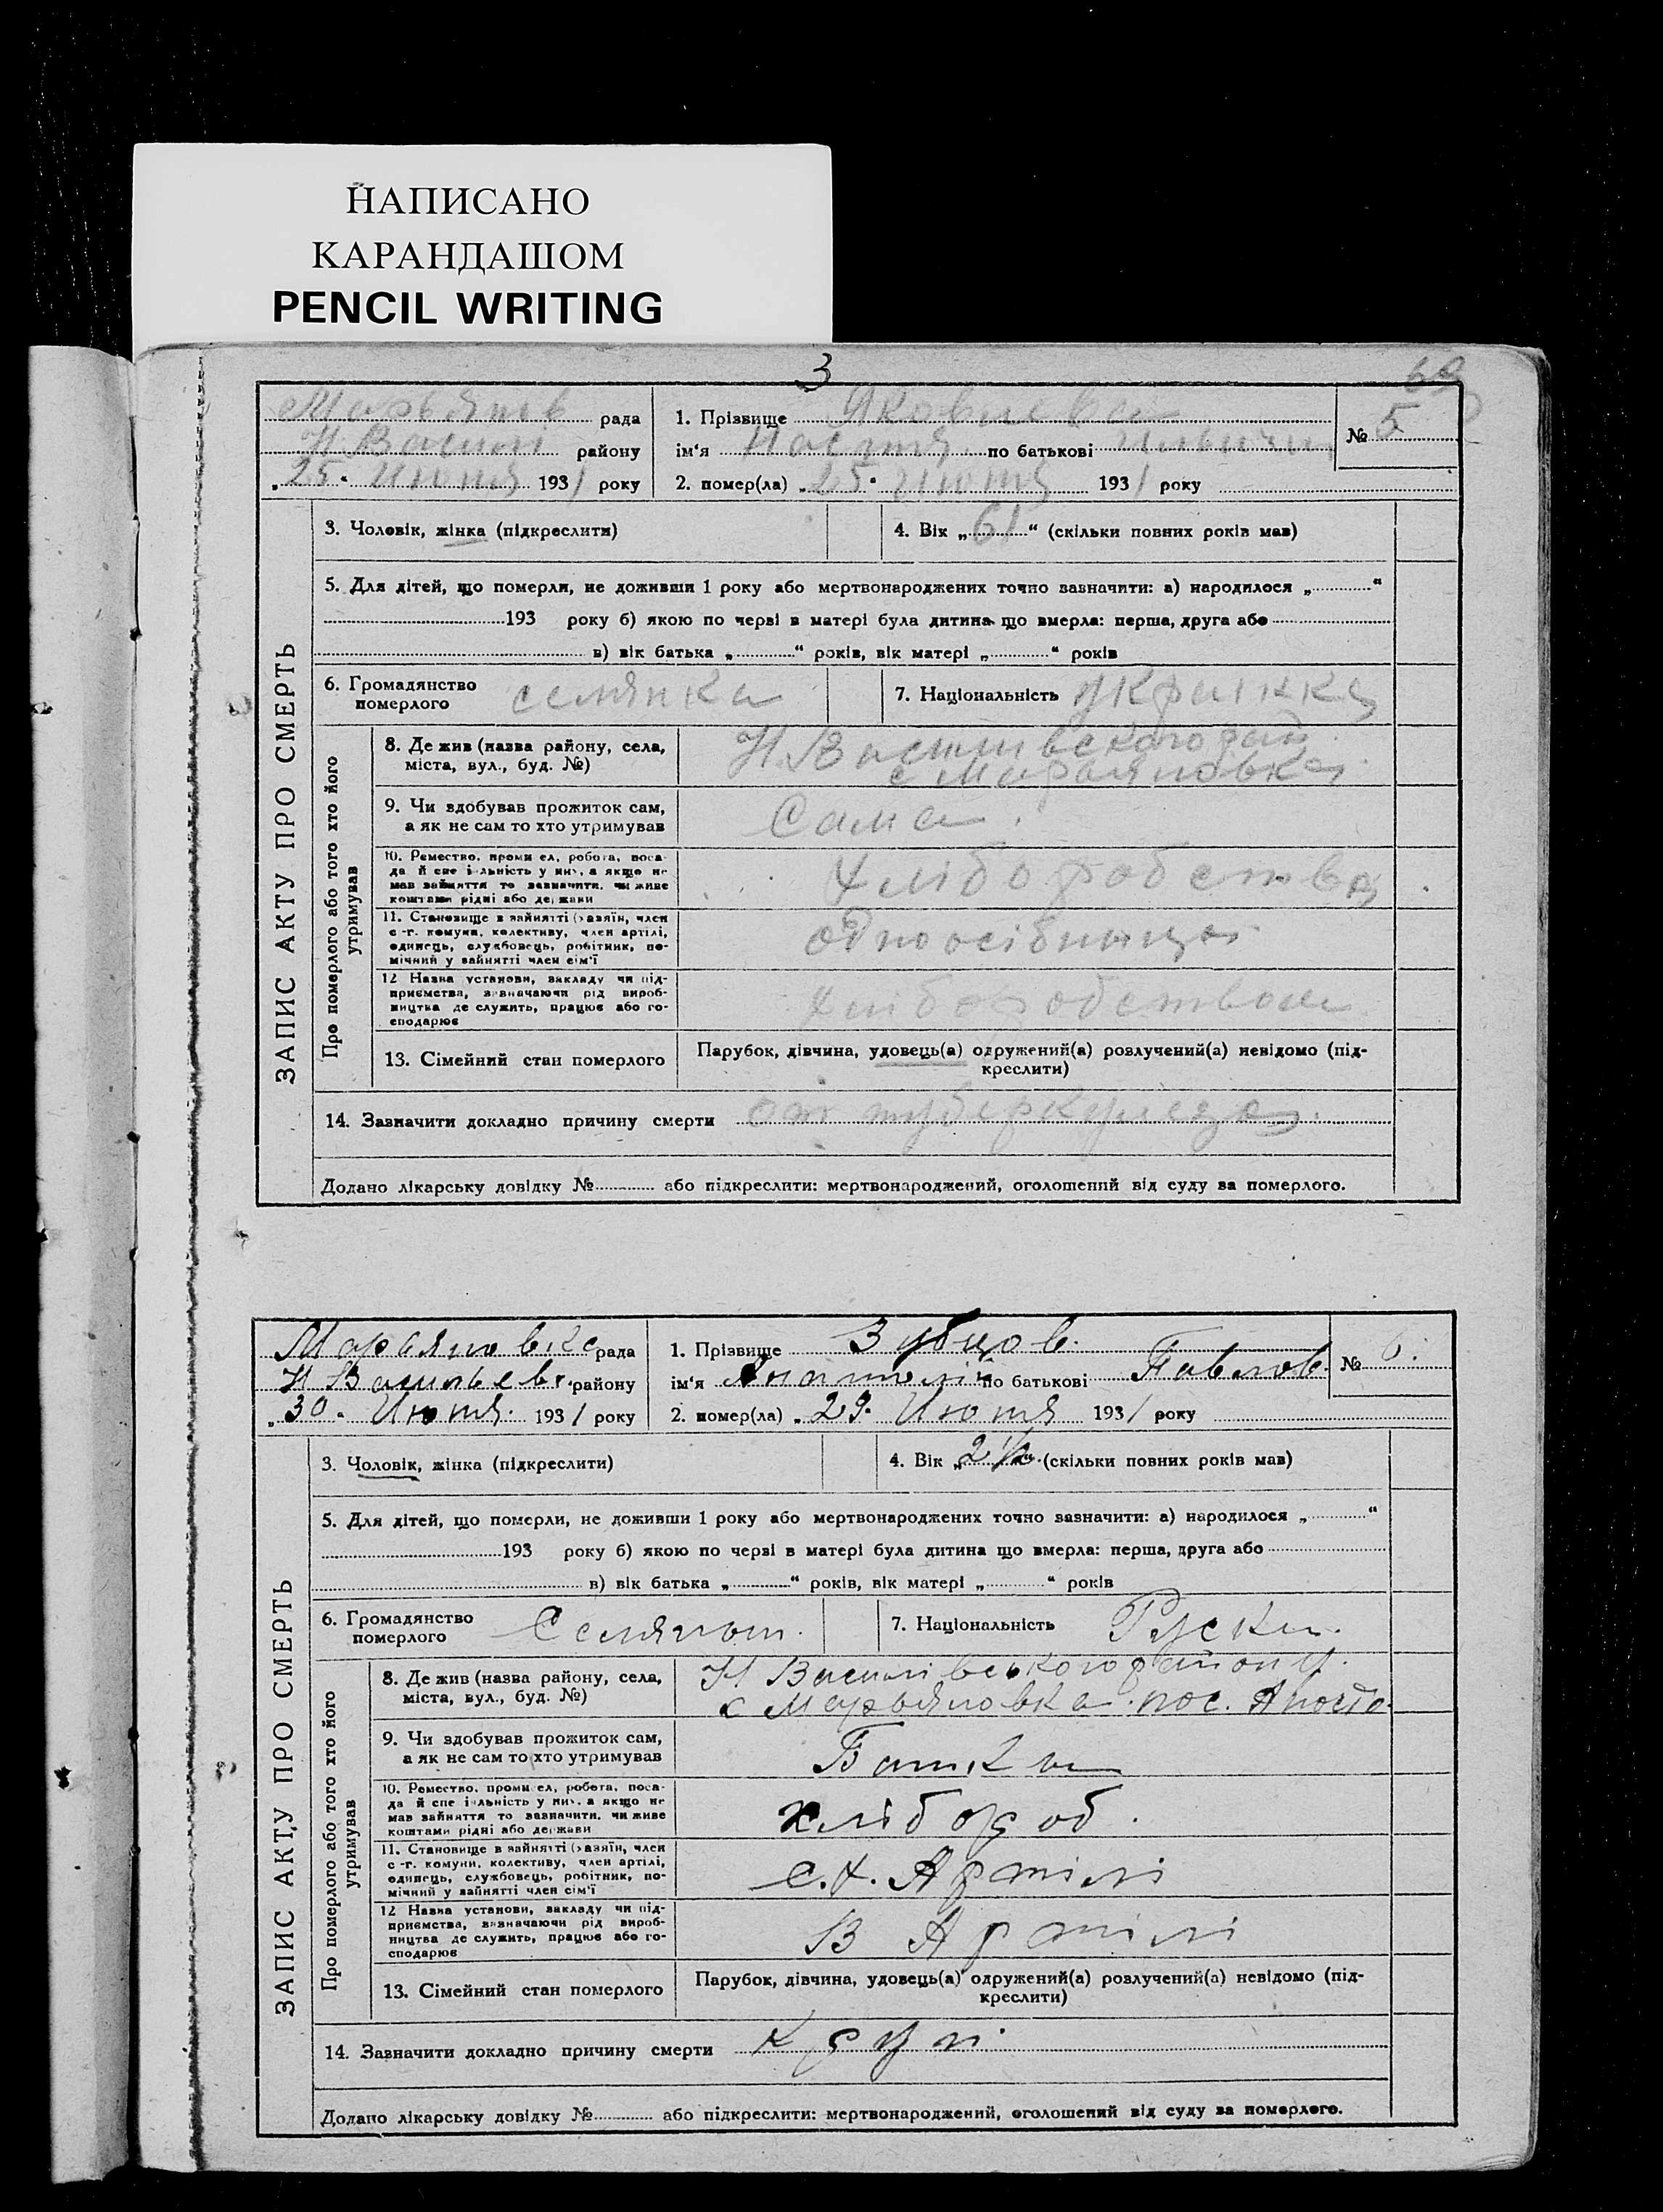 НАПИСАНО
КАРАНДАШОМ
PENCIL WRITING
3
69
рада
1. Прізвище Яковлева
№ 5
Н Васил район у
ім'я Настя по батькові
„25" Июня 1931 року
2. помер(ла) „25" Июня 1931 року
ЗАПИС АКТУ ПРО СМЕРТЬ
3. Чоловік, жінка (підкреслити)
4. Вік „61" (скільки повних років мав)
5. Для дітей, що померли, не доживши 1 року або мертвонароджених точно зазначити: а) народилося „ "
193 року б) якою по черзі в матері була дитина що вмерла: перша, друга або
в) вік батька „ " років, вік матері „ " років
6. Громадянство померлого селянка
7. Національність украінка
Про померлого або того хто його утримував
8. Де жив (назва району, села, міста, вул., буд. №)
Н. Василівского рай.
с Марьяновка
9. Чи здобував прожиток сам, а як не сам то хто утримував
Сама.
10. Ремество, промисел, робота, посада й спеціяльність у них, а якщо не мав зайняття то зазначити, чи живе коштами рідні або держави
Хліборобства
11. Становище в зайнятті (хазяїн, член с.-г. комуни, колективу, член артілі, одинець, службовець, робітник, помічний у зайнятті член сім'ї
одноосібниця
12 Назва установи, закладу чи підприємства, зазначаючи рід виробництва де служить, працює або господарює
хліборобством
13. Сімейний стан померлого
Парубок, дівчина, удовець(а) одружений(а) розлучений(а) невідомо (підкреслити)
14. Зазначити докладно причину смерти от туберкулеза.
Додано лікарську довідку № або підкреслити: мертвонароджений, оголошений від суду за померлого.
Марьяновка рада
1. Прізвище Зубцов
№ 6.
Н Васильев. району
ім'я Анатолій по батькові Павлов
„30" Июня 1931 року
2. помер(ла) „29" Июня 1931 року
ЗАПИС АКТУ ПРО СМЕРТЬ
3. Чоловік, жінка (підкреслити)
4. Вік „2 1/2 (скільки повних років мав)
5. Для дітей, що померли, не доживши 1 року або мертвонароджених точно зазначити: а) народилося „ "
193 року б) якою по черзі в матері була дитина що вмерла: перша, друга або
в) вік батька „ " років, вік матері „ " років
6. Громадянство померлого Селянин.
7. Національність Руски.
Про померлого або того хто його утримував
8. Де жив (назва району, села, міста, вул., буд. №)
Н Василівського району.
с Марьяновка пос.
9. Чи здобував прожиток сам, а як не сам то хто утримував
Батька
10. Ремество, промисел, робота, посада й спеціяльність у них, а якщо не мав зайняття то зазначити, чи живе коштами рідні або держави
хлібороб.
11. Становище в зайнятті (хазяїн, член с.-г. комуни, колективу, член артілі, одинець, службовець, робітник, помічний у зайнятті член сім'ї
с.х. Артілі
12 Назва установи, закладу чи підприємства, зазначаючи рід виробництва де служить, працює або господарює
В Артілі
13. Сімейний стан померлого
Парубок, дівчина, удовець(а) одружений(а) розлучений(а) невідомо (підкреслити)
14. Зазначити докладно причину смерти круп.
Додано лікарську довідку № або підкреслити: мертвонароджений, оголошений від суду за померлого.